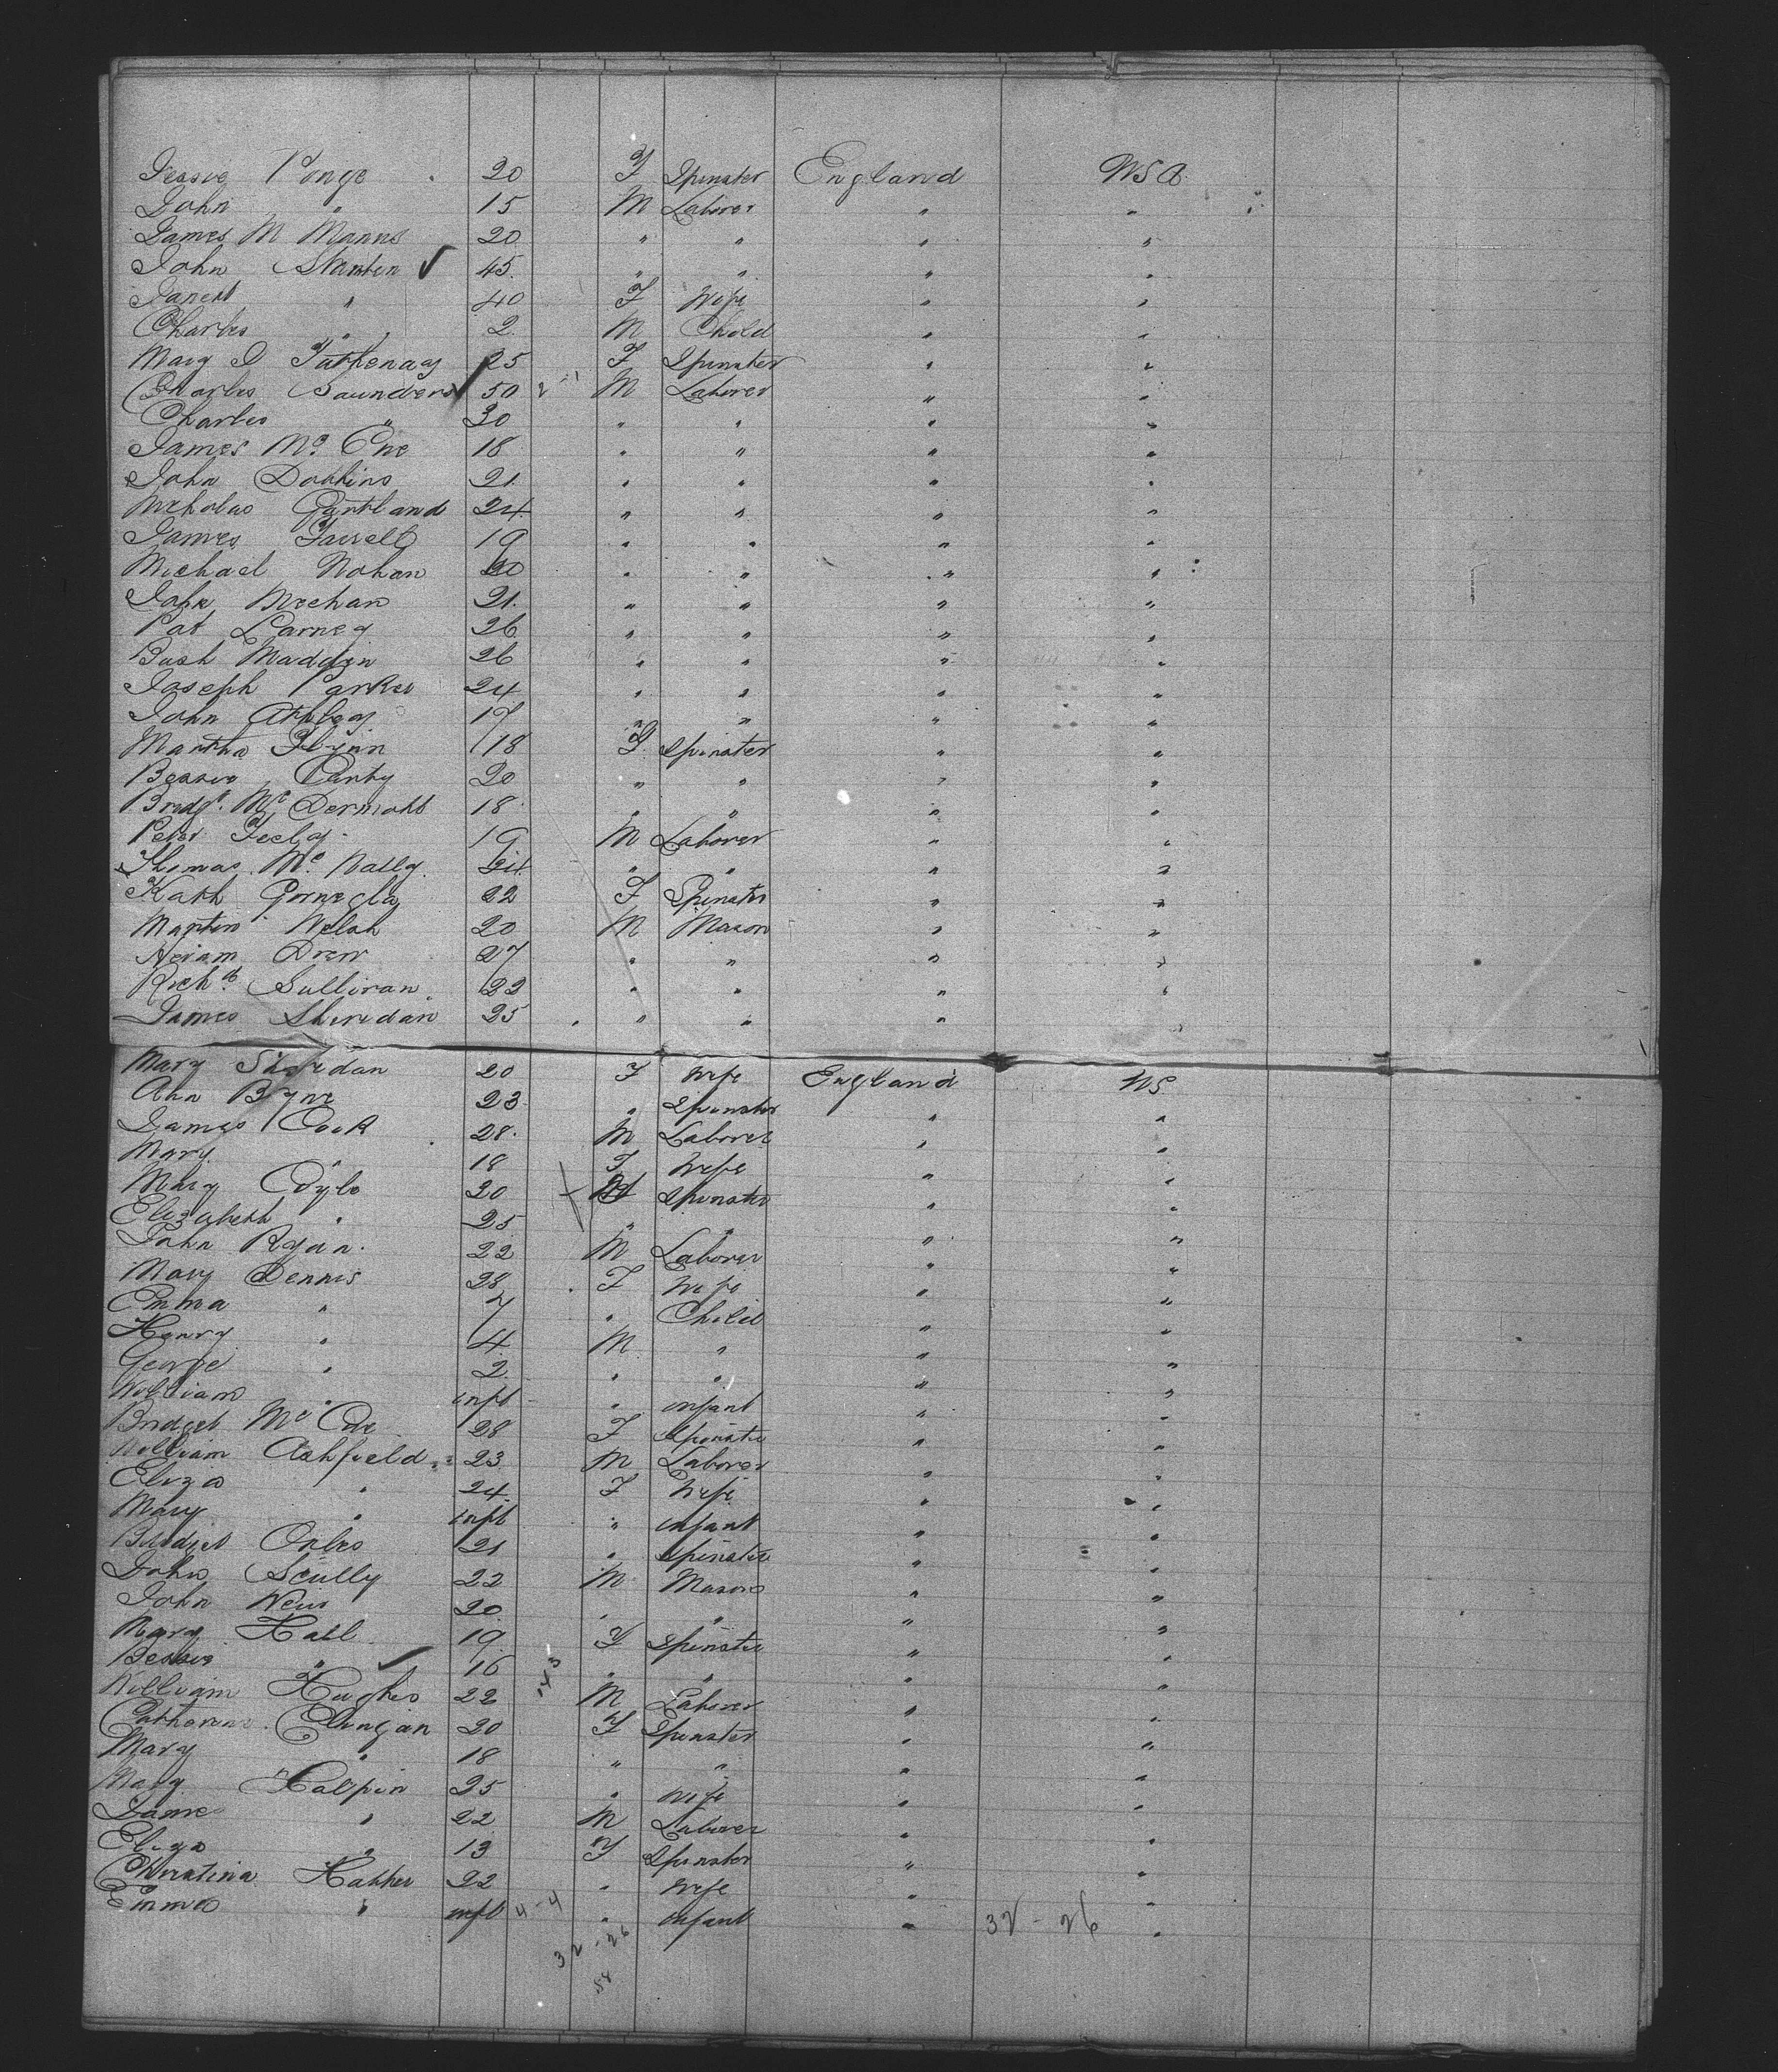 Jessie Ponge 20 F Spinster England USA
John " 15 M Laborer " "
James M Manns 20 " " " "
John Stanten 45 " " " "
Janett " 40 F Wife " "
Charles " 2 M Child " "
Mary J 25 F Spinster " "
Charles Saunders 50 M Laborer " "
Charles " 30 " " " "
James Mc 18 " " " "
John Dobbins 21 " " " "
Nicholas Gartland 24 " " " "
James Farrell 19 " " " "
Michael Nohan 20 " " " "
John Meehan 21 " " " "
Pat Larney 26 " " " "
Madden 26 " " " "
Joseph Parker 24 " " " "
John 17 " " " "
Martha Flynn 18 F Spinster " "
Bessie 20 " " " "
Bridgt. Mc Dermott 18 " " " "
Peter Feely 19 M Laborer " "
Thomas Mc Nally 24 " " " "
Kath 22 F Spinster " "
Martin Welsh 20 M Mason " "
Hiram Drew 27 " " " "
Richd. Sullivan 22 " " " "
James Sheridan 25 " " "
Mary Sheridan 20 F Wife England US
Ann Byrne 23 " Spinster " "
James Cook 28 M Laborer " "
Mary " 18 F Wife " "
Mary 20 F Spinster " "
Elizabeth " 25 " " " "
John Ryan 22 M Laborer " "
Mary Dennis 28 F Wife " "
Emma " 7 " Child " "
Henry " 4 M " " "
George " 2 " " " "
William " inft " infant " "
Bridget Mc 28 F Spinster " "
William Ashfield 23 M Laborer " "
Eliza " 24 F Wife " "
Mary " inft " infant " "
Bridget 21 " Spinster " "
John Scully 22 M Mason " "
John 20 " " " "
Mary Hall 19 F Spinster " "
Bessie " 16 " " " "
William Hughes 22 M Laborer " "
Catherine 20 F Spinster " "
Mary " 18 " " " "
Mary Halpin 25 " Wife " "
James " 22 M Laborer " "
Eliza " 13 F Spinster " "
Christina 22 " Wife " "
Emma " inft 4-4 " infant " 32-26 "
32-26
58